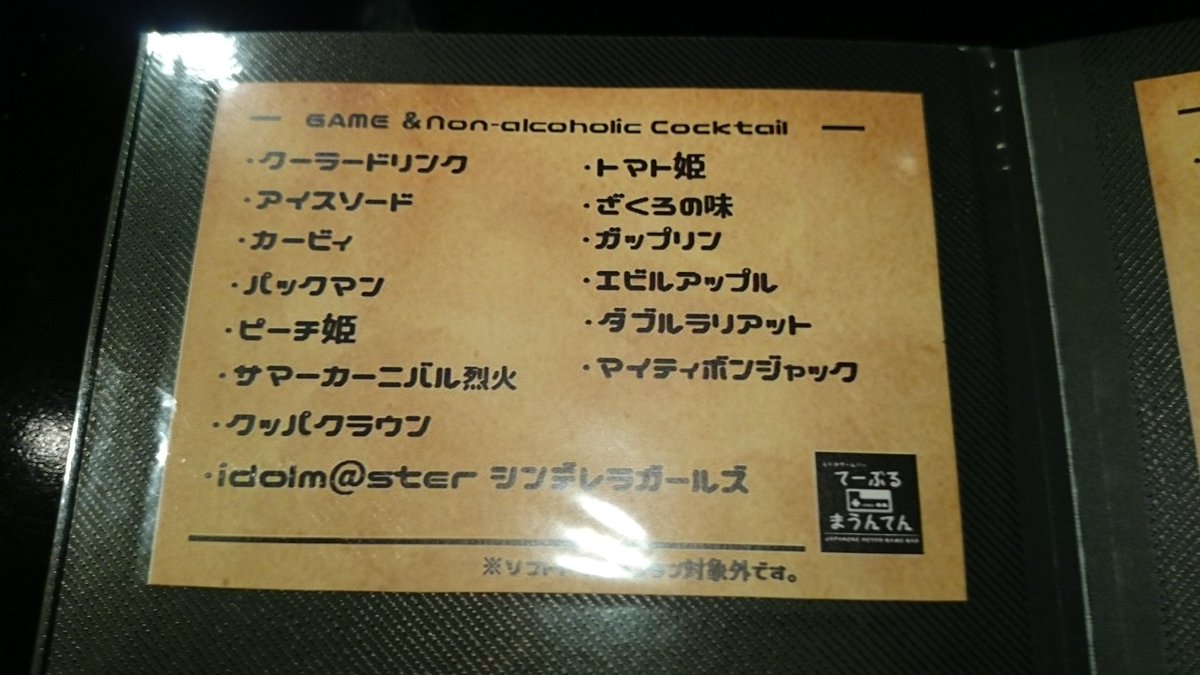 GAME & Non-alcoholic Cocktail
・クーラードリンク
・アイスソード
・カービィ
・パックマン
・ピーチ姫
・サマーカーニバル烈火
・クッパクラウン
・idolm@ster シンデレラガールズ
・トマト姫
・ざくろの味
・ガップリン
・エビルアップル
・ダブルラリアット
・マイティボンジャック
てーぶる
まうんてん
JAPANESE RETRO GAME BAR
※ソフト
対象外です。